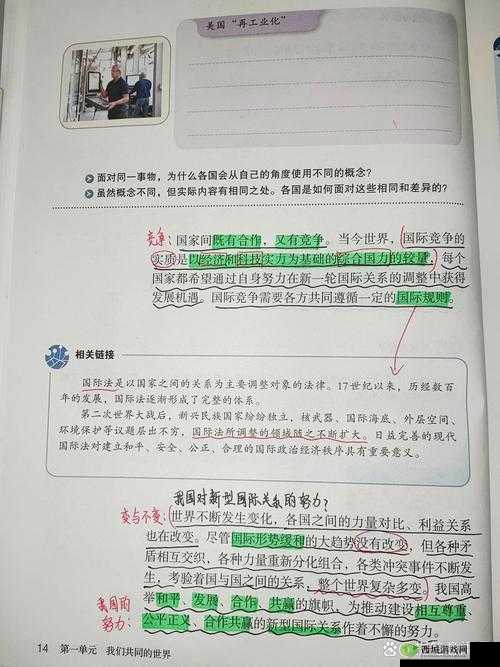 美国“再工业化”
面对同一事物，为什么各国会从自己的角度使用不同的概念？
虽然概念不同，但实际内容有相同之处。各国是如何面对这些相同和差异的？
竞争：国家间既有合作，又有竞争。当今世界，国际竞争的
实质是以经济和科技实力为基础的综合国力的较量。每个
国家都希望通过自身努力在新一轮国际关系的调整中获得
发展机遇。国际竞争需要各方共同遵循一定的国际规则。
相关链接
国际法是以国家之间的关系为主要调整对象的法律。17世纪以来，历经数百
年的发展，国际法逐渐形成了完整的体系。
第二次世界大战后，新兴民族国家纷纷独立，核武器、国际海底、外层空间、
环境保护等议题层出不穷，国际法所调整的领域随之不断扩大。日益完善的现代
国际法对建立和平、安全、公正、合理的国际政治经济秩序具有重要意义。
我国对新型国际关系的努力？
变与不变：世界不断发生变化，各国之间的力量对比、利益关系
也在改变。尽管国际形势缓和的大趋势没有改变，但各种矛
盾相互交织，各种力量重新分化组合，各类冲突事件不断发
生，考验着国与国之间的关系，整个世界复杂多变。我国高
举和平、发展、合作、共赢的旗帜，为推动建设相互尊重、
我国的
努力：公平正义、合作共赢的新型国际关系作着不懈的努力。
14 第一单元 我们共同的世界
西城游戏网